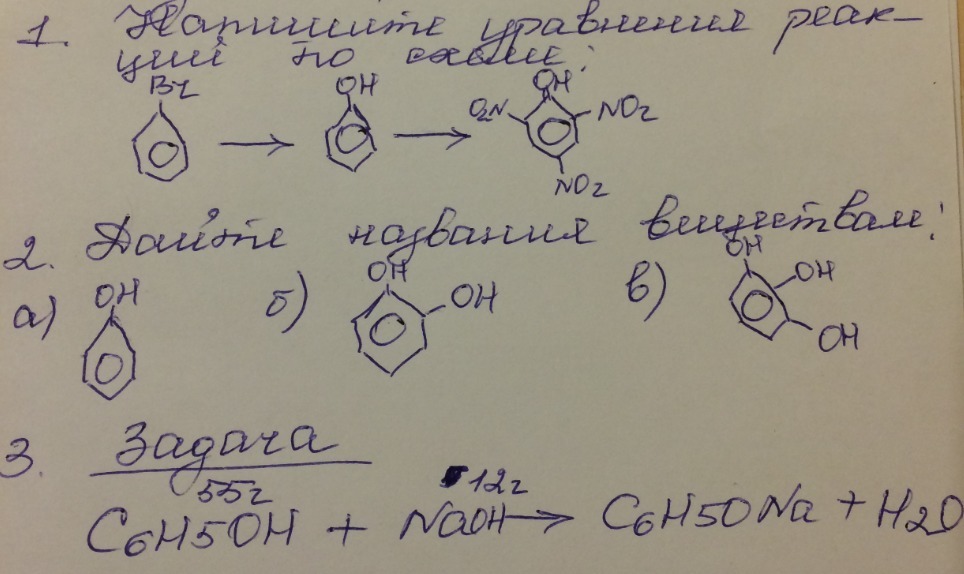 1. Напишите уравнения реак-
ций по схеме:
Br OH OH
O2N NO2
NO2
2. Дайте названия веществам:
а) OH б) OH OH в) OH OH
OH
3. Задача
55г 12г
C6H5OH + NaOH → C6H5ONa + H2O